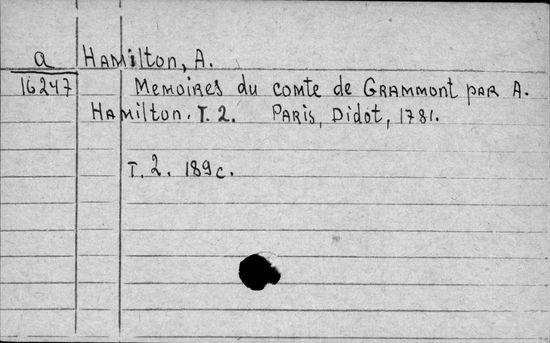 a Hamilton, A.
16247 Memoires du comte de Grammont par A.
Hamilton. T. 2. Paris, Didot, 1781.
T. 2. 189 c.